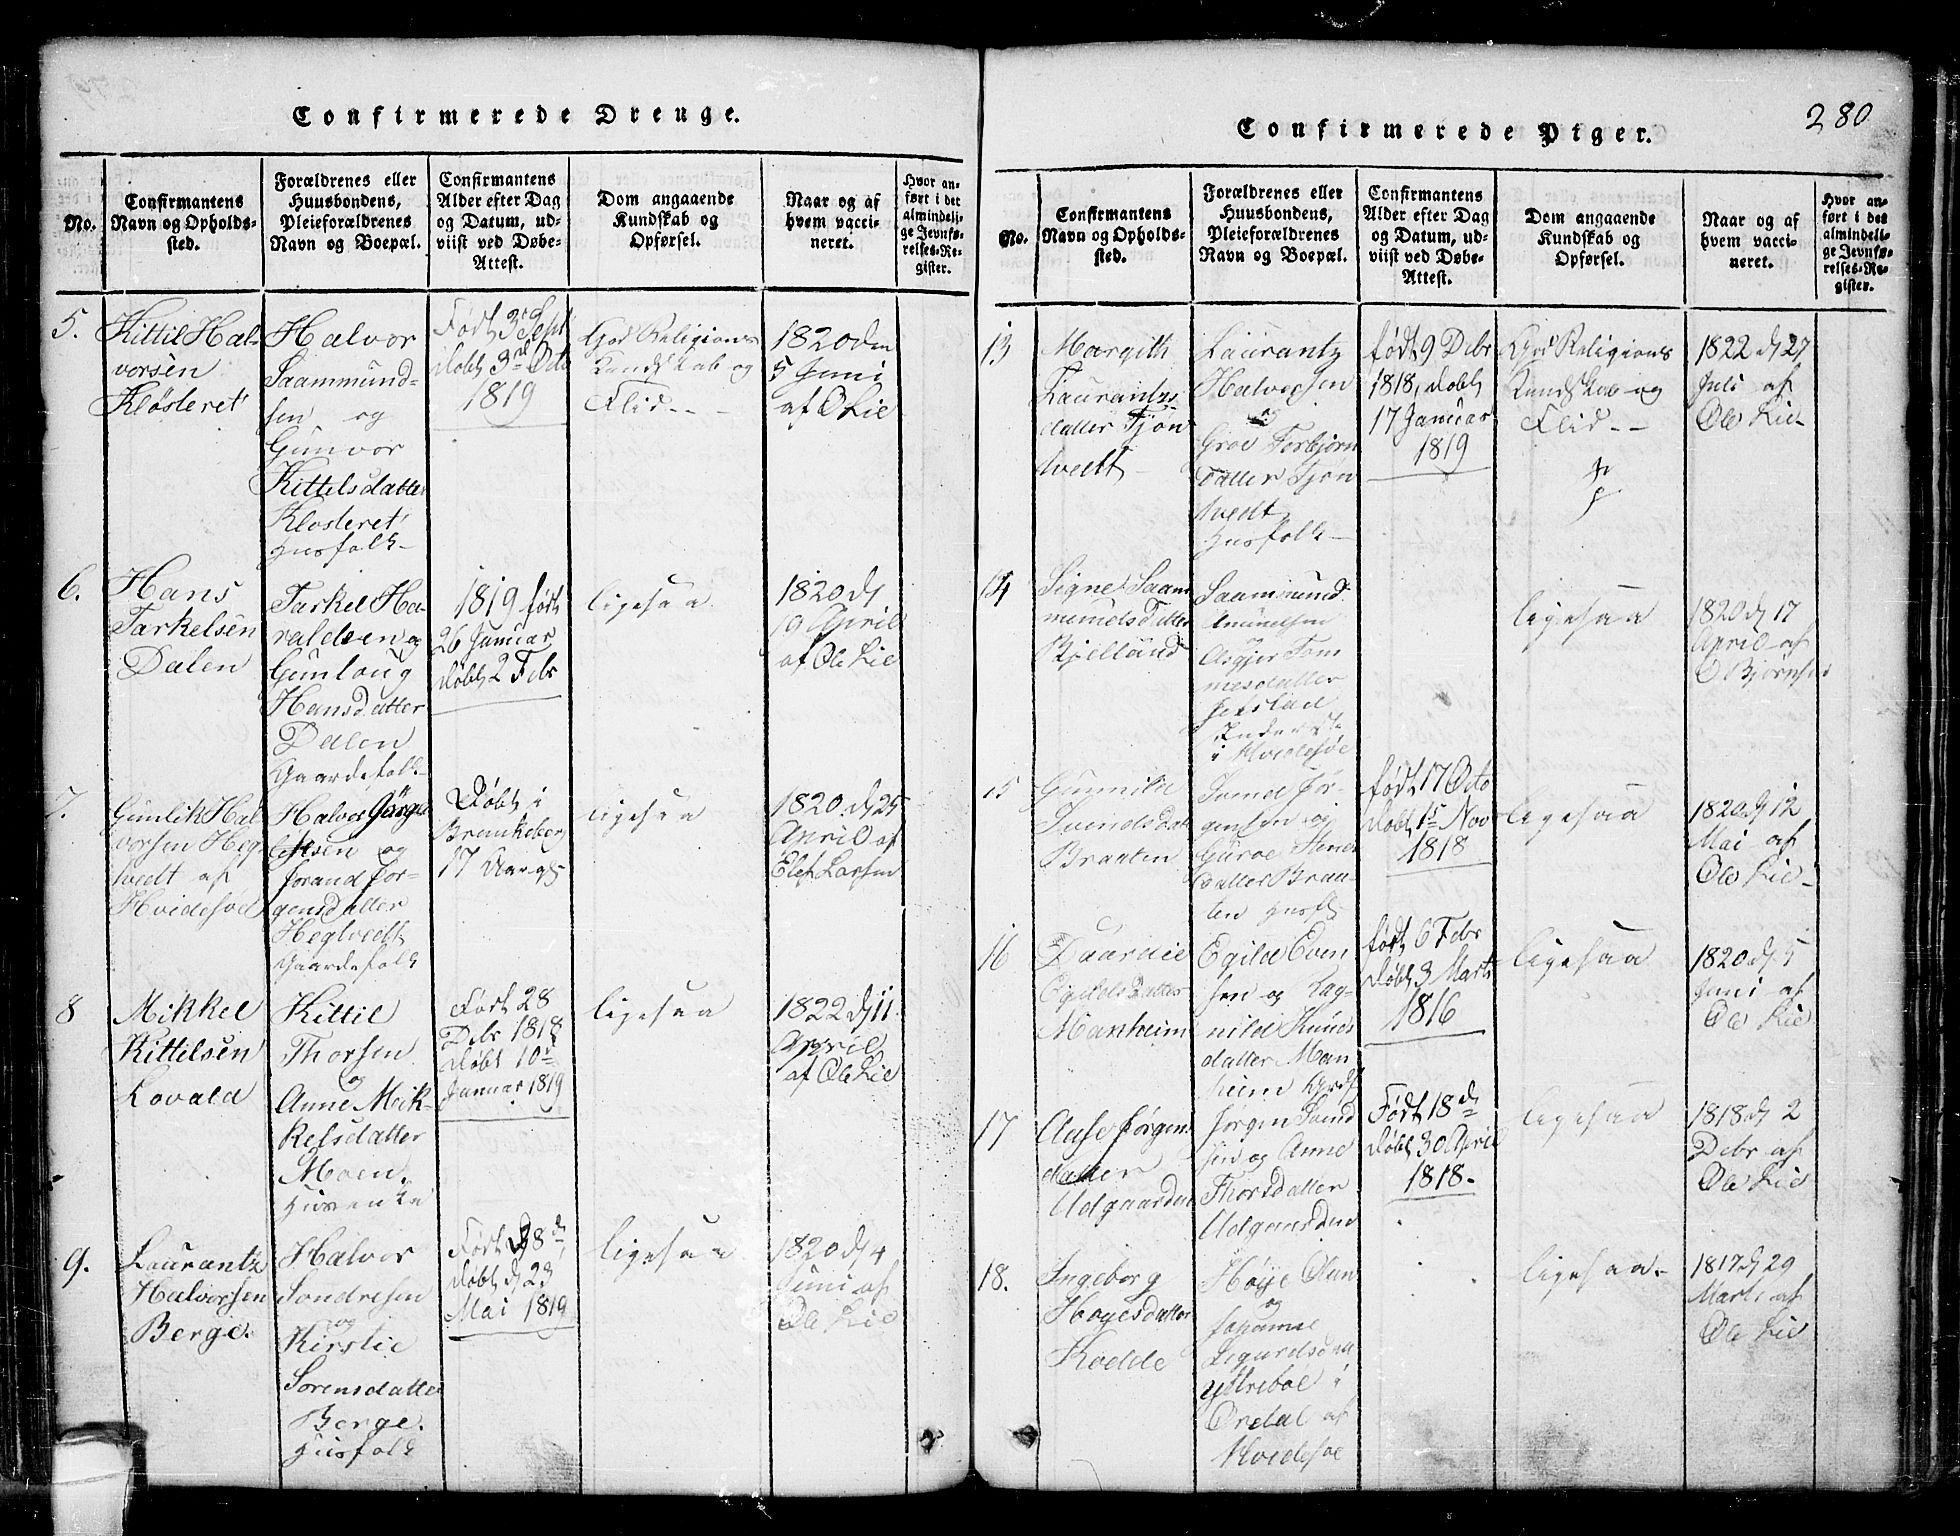 Confirmerede Drenge.
No.
Confirmantens
Navn og Opholds-
sted.
Forældrenes eller
Huusbondens,
Pleieforældrenes
Navn og Boepæl.
Confirmantens
Alder efter Dag
og Datum, ud-
viist ved Døbe-
Attest.
Dom angaaende
Kundskab og
Opførsel.
Naar og af
hvem vacci-
neret.
Hvor an-
ført i det
almindeli-
ge Jevnfø-
relses-Re-
gister.
5.
Kittil Hal-
vorsen
Kløsteret
Halvor
Saammund-
sen og
Gunvor
Kittelsdatter
Klosteret
Husfolk
Født 3 Sept
døbt 3 Octo
1819
God Religions
Kundskab og
Flid
1820 den
5 Juni
af O Lie
6.
Hans
Tarkelsen
Dalen
Tarkel Ha-
raldsen og
Gunloug
Hansdatter
Dalen
Gaardefolk
1819 født
26 Januar
døbt 2 Febr
ligesaa
1820 d
19 April
af Ole Lie
7.
Gunlik Hal
vorsen Heg
tvedt af
Hvidesøe
Halvor Jørgen
og
Jorand Jør-
gensdatter
Heglvedt
Gaardefolk
Døbt i
Brunkeberg
17 Aar
ligesaa
1820 d 25
April af
Elef Larsen
8
Mikkel
Kittilsen
Lovald
Kittil
Thorsen
og
Anne Mik-
kelsdatter
Moen.
Født 28
Debr 1818
døbt 10
Januar 1819
ligesaa
1822 d 11
April
af Ole Lie
9.
Laurantz
Halvorsen
Berge.
Halvor
Sondresen
og
Kirstie
Sorensdatter
Berge.
Husfolk
Født
døbt d 23
Mai 1819
ligesaa
1820 d 4
Juni af
Ole Lie
280
Confirmerede Piger.
No.
Confirmantens
Navn og Opholds-
sted.
Forældrenes eller
Huusbondens,
Pleieforældrenes
Navn og Boepæl.
Confirmantens
Alder efter Dag
og Datum, ud-
viist ved Døbe-
Attest.
Dom angaaende
Kundskab og
Opførsel.
Naar og af
hvem vacci-
neret.
Hvor an-
ført i det
almindeli-
ge Jevnfø-
relses-Re-
gister.
13
Margith
Laurantz-
datter Tjøn
tvedt
Laurantz
Halvorsen
og
Groe Torbjørn
datter Tjøn
tvedt
Husfolk
født 9 Debr
1818, døbt
17 Januar
1819
God Religions
Kundskab og
Flid
1822 d 27
Juli af
Ole Lie
14
Signe Saam
mundsdatter
Bjelland
Saammund
Amundsen
og
Asgjer Tom
mesdatter
i Hvidesøe
ligesaa
1820 d 17
April af
O Bjørnsen
15
Gunnild
Svendsdatt
Braaten
Svend Jør-
gensen og
Guroe
datter Braa-
ten
født 17 Octo
døbt 15 Nov
1818
ligesaa
1820 d 12
Mai af
Ole Lie
16
Egildsdatter
Manheim
Egild Even
sen og Rag-
nild Knuds
datter Man
heim
født 6 Febr
døbt 3 Marts
1816
ligesaa
1820 d 5
Juni af
Ole Lie
17
Aase Jørgens
datter
Udgaarden
Jørgen Svend
sen og Anne
Thorsdatter
Udgaarden
Født 18 d
døbt 30 April
1818
ligesaa
1818 d 2
Debr af
Ole Lie
18.
Ingeborg
Høyesdatter
Kodde
Høye Olsen
og
Johanne
Sigurdsda
Ytreboe i
Ørdal af
Hvidesøe
ligesaa
1817 d 29
Marts af
Ole Lie